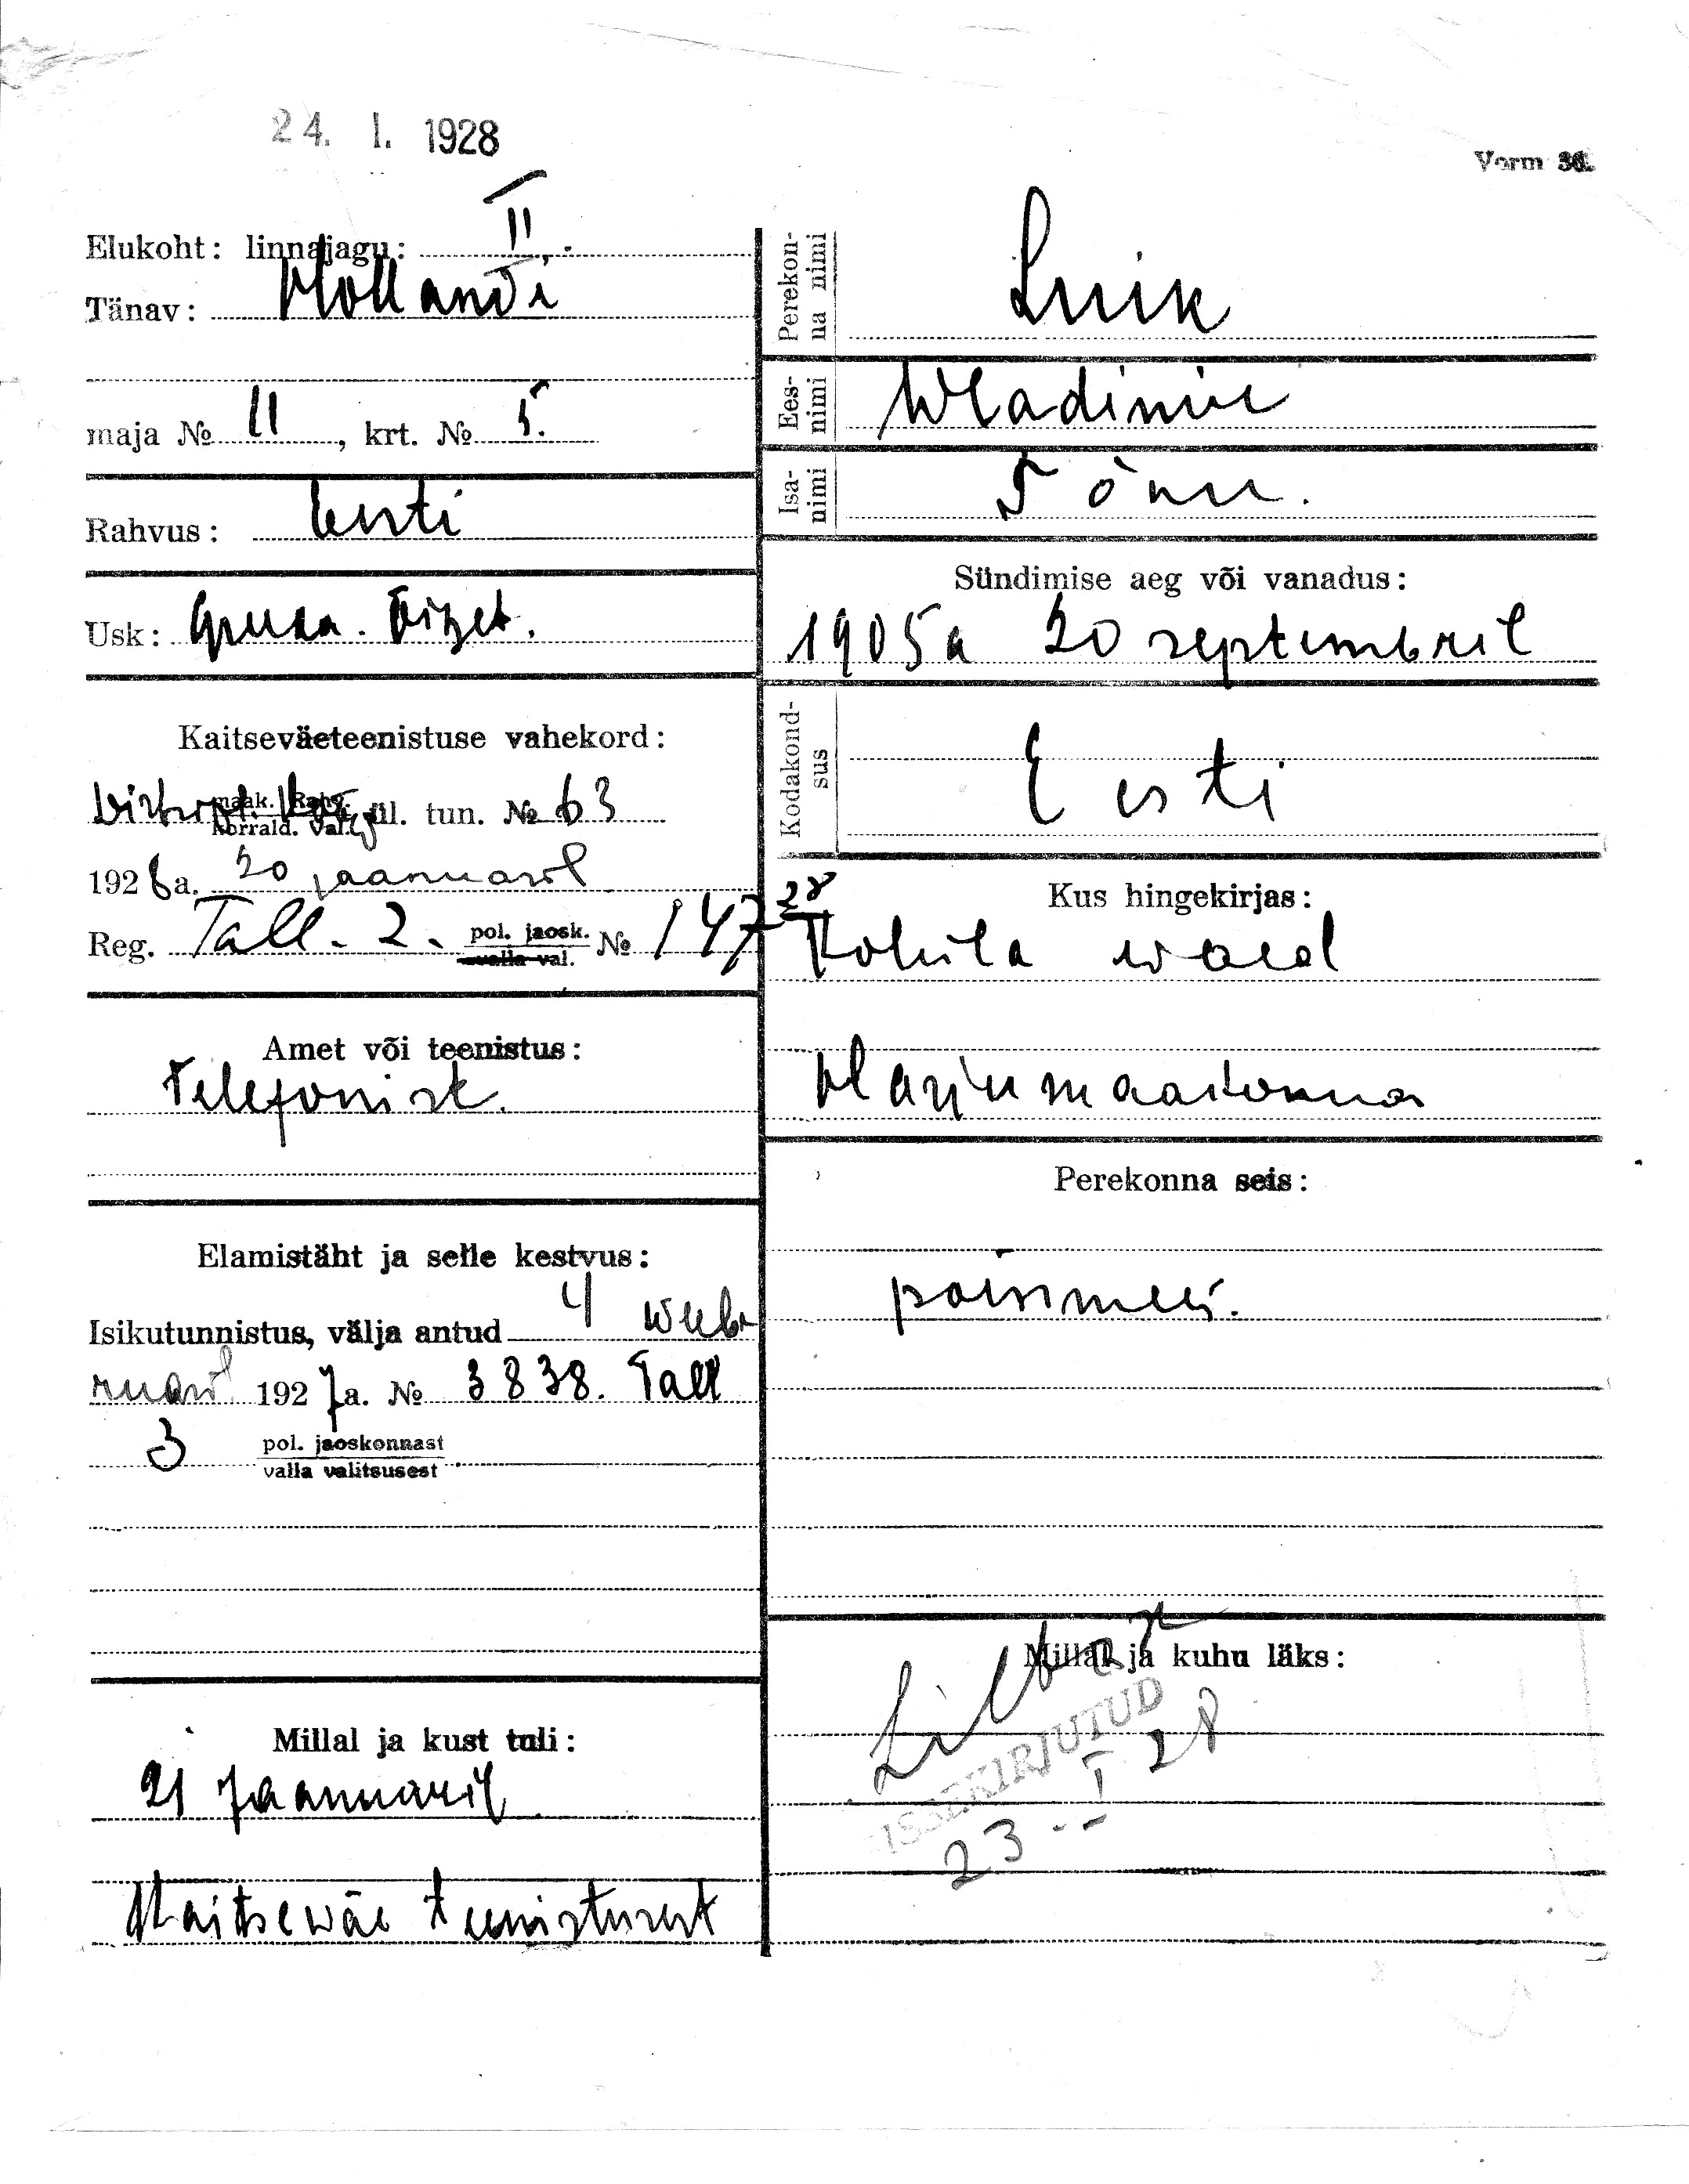 24. I. 1928
Vorm 36.
Elukoht: linnajagu: II
Tänav: Hollandi
maja № 11, krt. № 5.
Rahvus: Eesti
Usk: Õiget.
Kaitseväeteenistuse vahekord:
maak. Rahv.
korrald. val. ül. tun. № 63
1928a. 20 jaanuaril
Reg. Tall. 2. pol. jaosk. № 147 28
valla val.
Amet või teenistus:
Telefonist.
Elamistäht ja selle kestvus:
Isikutunnistus, välja antud 4 weeb
ruaril 1927a. № 3838. Tall
3 pol. jaoskonnast
valla valitsusest
Millal ja kust tuli:
21 Jaanuaril
Kaitsewäe teenistusest
Perekon-
na nimi
Luik
Ees-
nimi
Wladimir
Isa-
nimi
Tõnu.
Sündimise aeg või vanadus:
1905a 20 septembril
Kodakond-
sus
Eesti
Kus hingekirjas:
Kohila wald
Harjumaakonna
Perekonna seis:
poissmees.
Millal ja kuhu läks:
SISSEKIRJUTUD
23 I 28